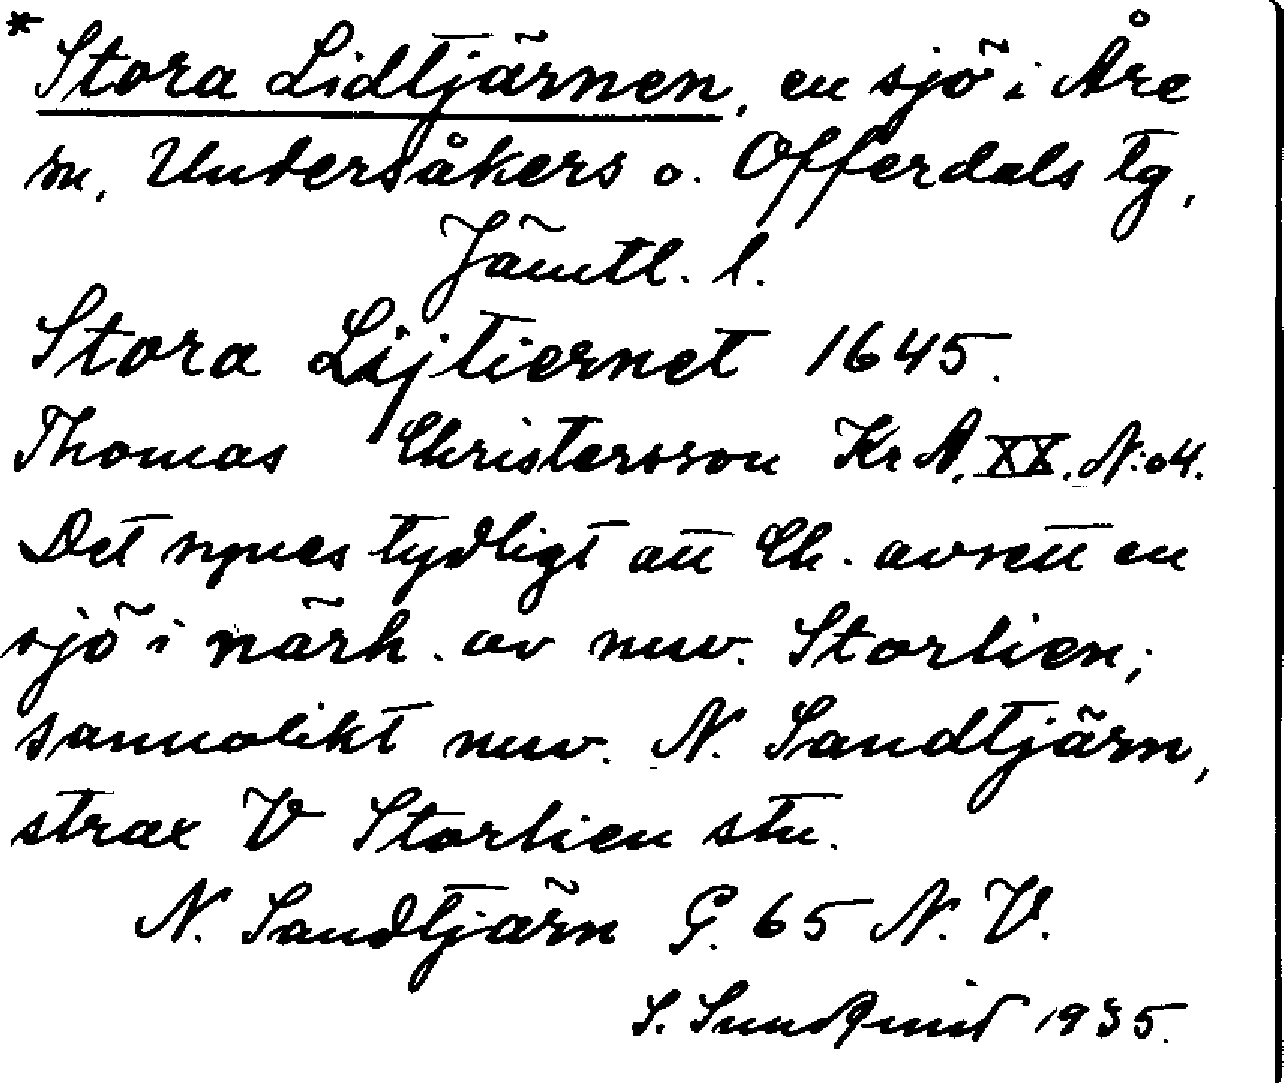 * Stora Lidtjärnen, en sjö i Åre
sn, Undersåkers o. Offerdals tg,
Jämtl. l.
Stora Lijtiernet 1645.
Thomas Christersson Kr A. XX. N:o 4.
Det synes tydligt att Ch. avsett en
sjö i närh. av nuv. Storlien;
sannolikt nuv. N. Sandtjärn,
strax V Storlien stn.
N. Sandtjärn G. 65 N. V.
S. Sundqvist 1935.